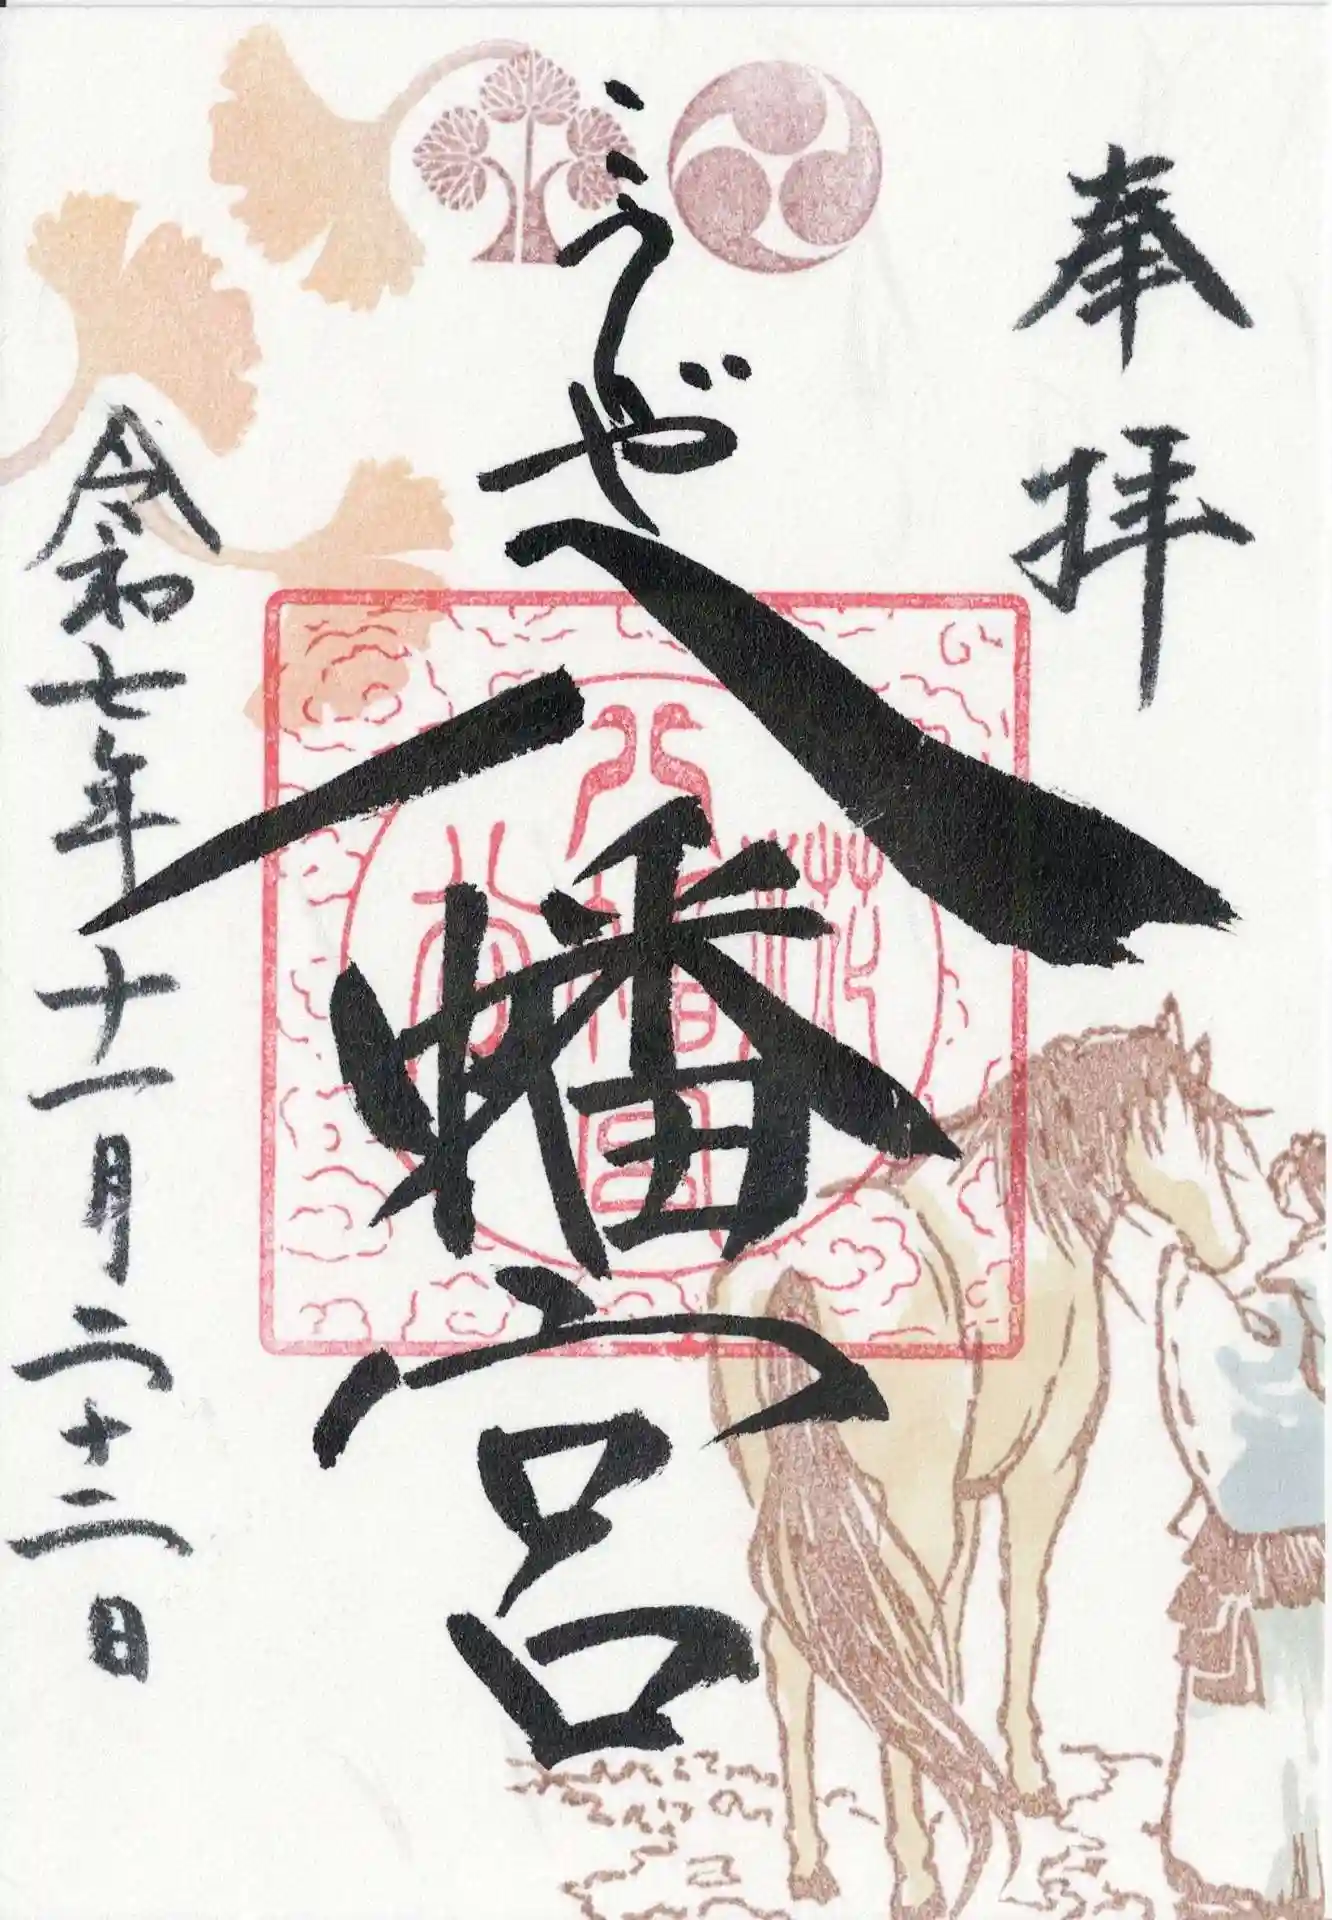 奉拝
こうじや
八幡宮
令和七年十一月二十二日